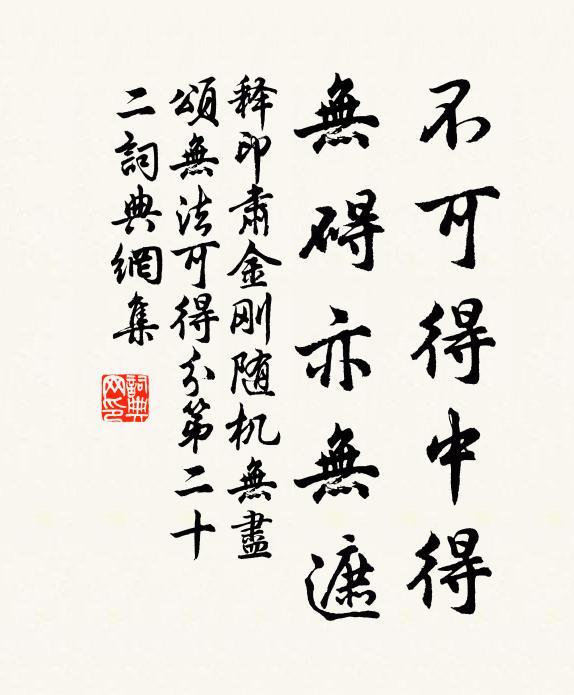 不可得中得
無碍亦無遮
释印肅金剛随机無盡
頌無法可得分第二十
二詞典網集
詞典網印